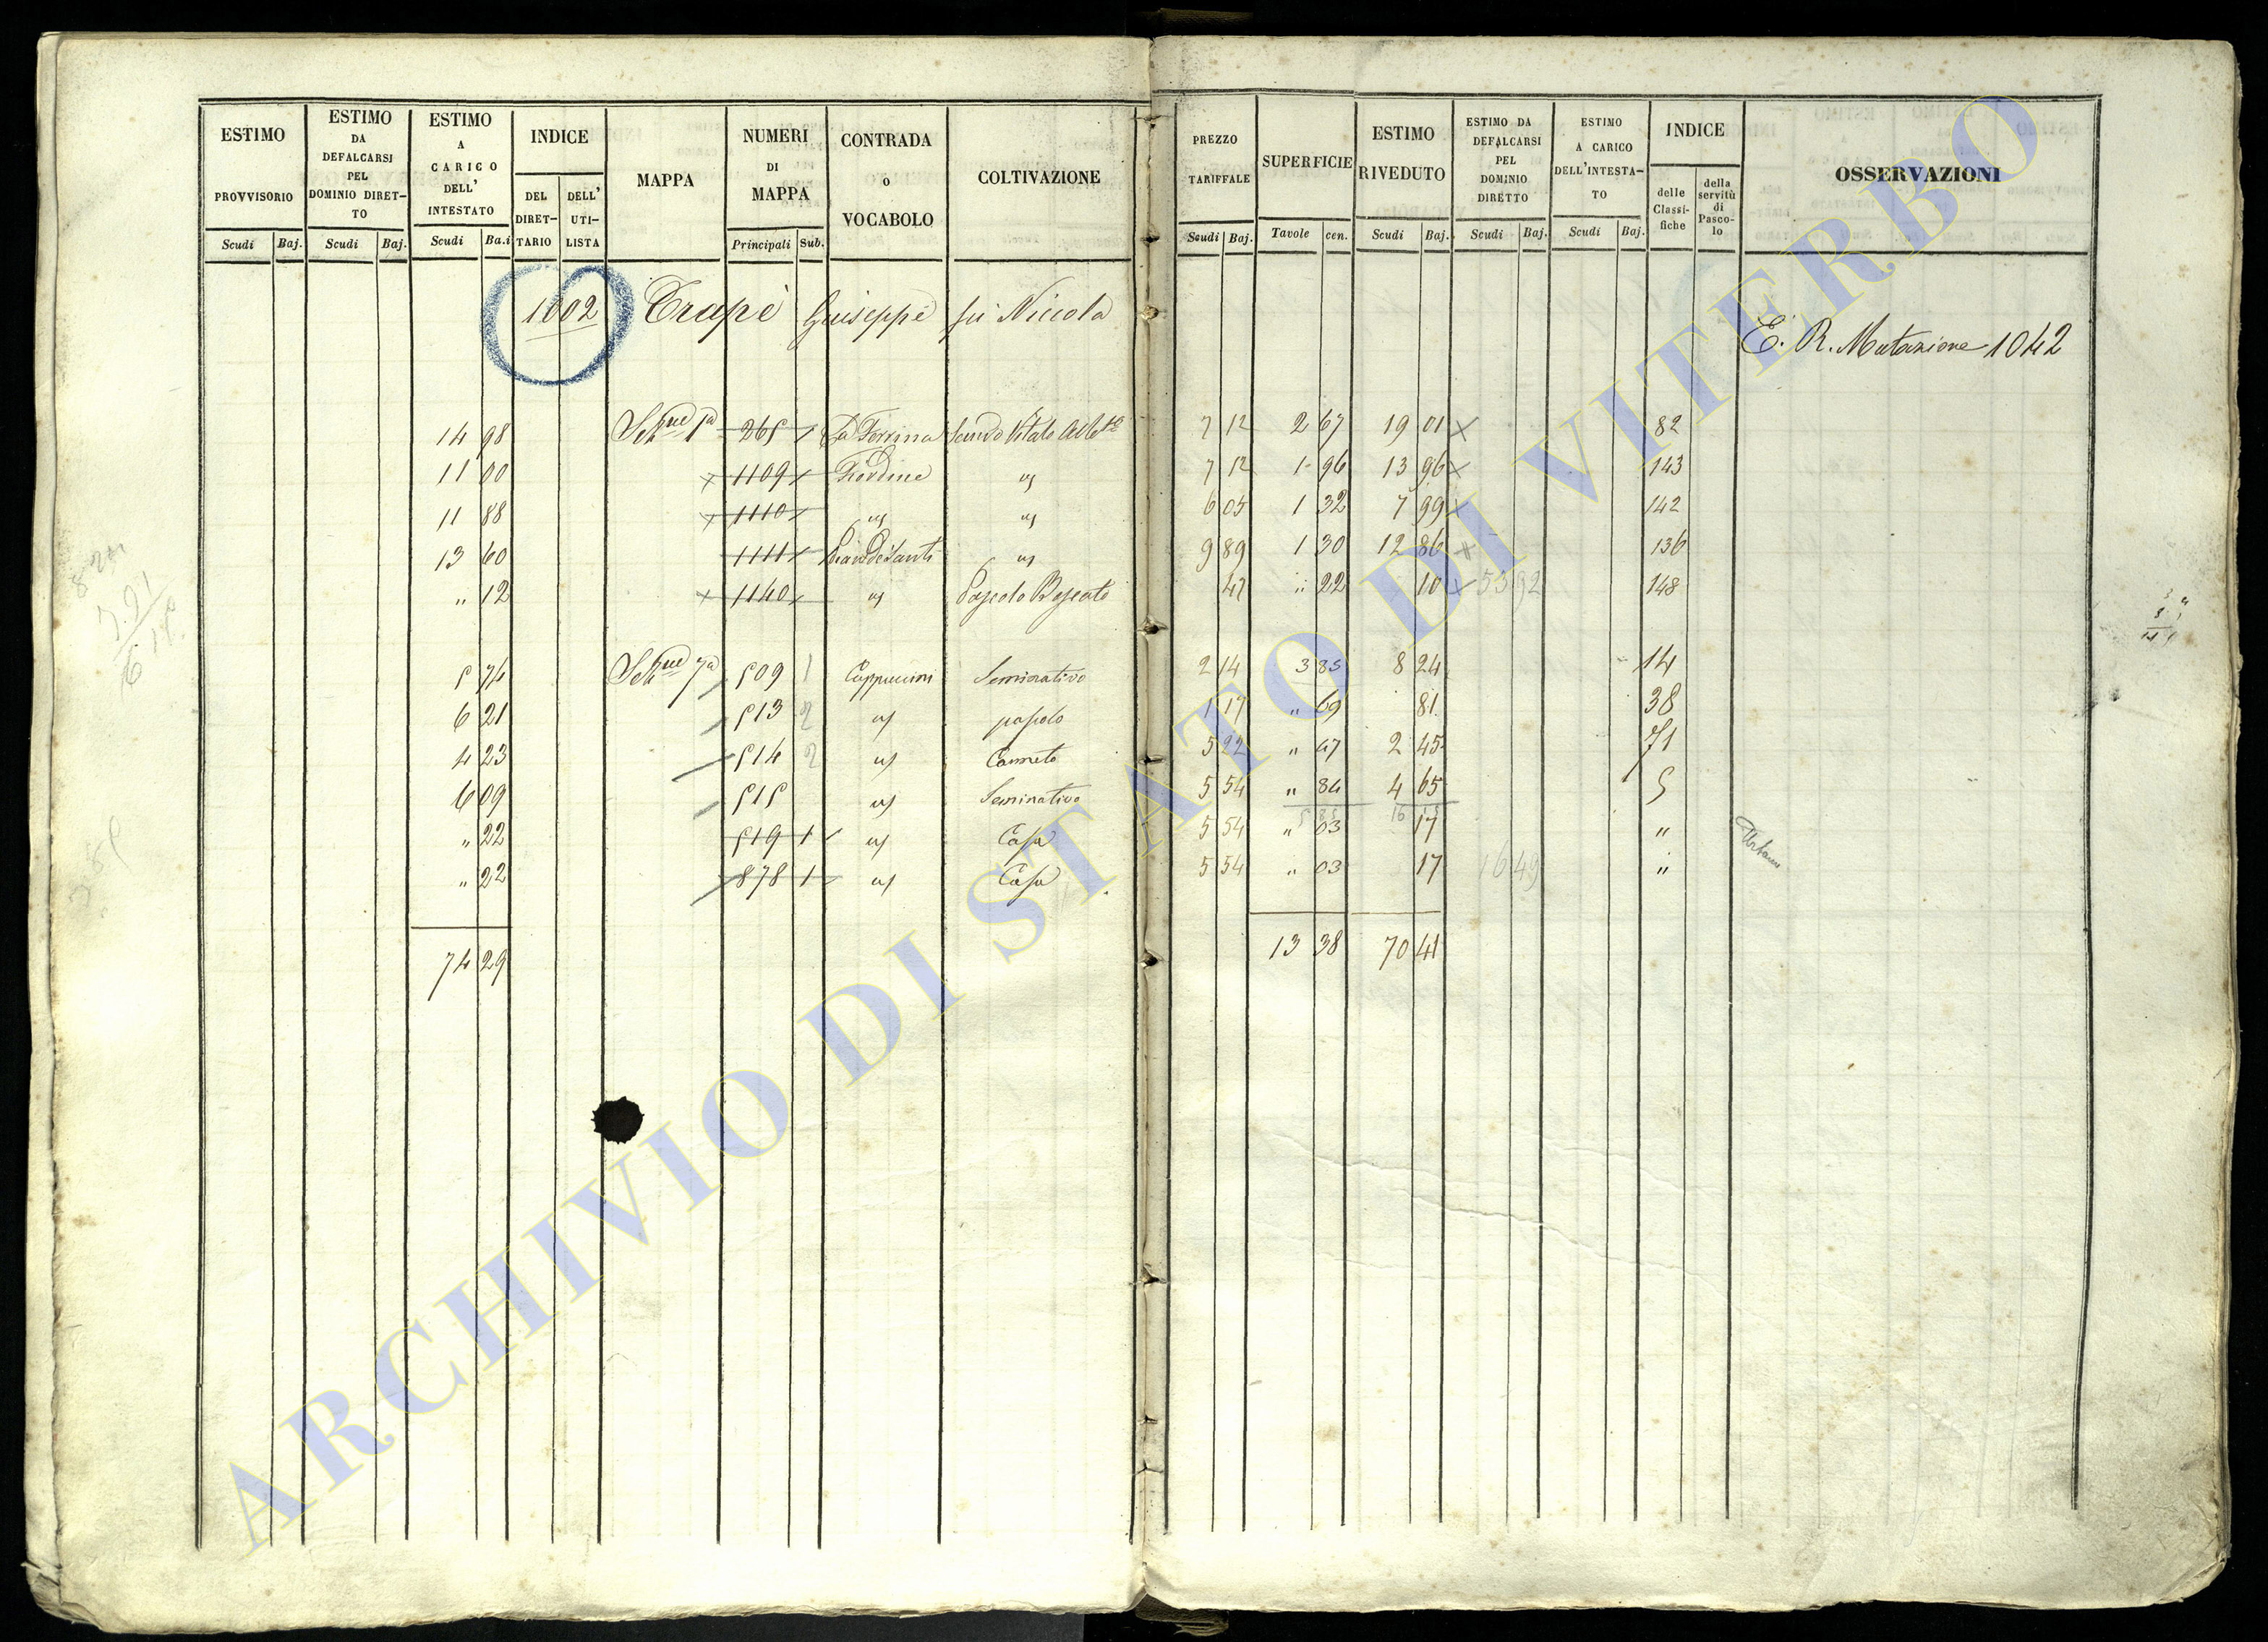 ESTIMO PROVVISORIO
ESTIMO DA DEFALCARSI PEL DOMINIO DIRET-TO
ESTIMO A CARICO DELL' INTESTATO
INDICE
DEL DIRET-TARIO
DELL' UTI-LISTA
MAPPA
NUMERI DI MAPPA
CONTRADA o VOCABOLO
COLTIVAZIONE
PREZZO TARIFFALE
SUPERFICIE
ESTIMO RIVEDUTO
ESTIMO DA DEFALCARSI PEL DOMINIO DIRETTO
ESTIMO A CARICO DELL'INTESTA-TO
INDICE
delle Classi-fiche
della servitù di Pasco-lo
OSSERVAZIONI
Scudi Baj. Scudi Baj. Scudi Ba.i Principali Sub.
Scudi Baj. Tavole cen. Scudi Baj. Scudi Baj. Scudi Baj.
1002 Trapè Giuseppe fu Niccola
E. R. Mutazione 1042
14 98 Sez.ne 1a 265 La Torrina 7 12 2 67 19 01 x 82
11 00 x 1109 x " 7 12 1 96 13 96 x 143
11 88 x 1110 x " " 6 05 1 32 7 99 x 142
13 60 1111 x " 9 89 1 30 12 86 x 136
" 12 x 1140 x " Pascolo Boscato 47 " 22 10 x 53 92 148
5 74 Sez.ne 7a 509 1 Cappuccini Seminativo 2 14 3 85 8 24 14
6 21 513 2 " pascolo 1 17 " 69 81 38
4 23 514 2 " Canneto 5 22 " 47 2 45 71
6 09 515 " Seminativo 5 54 " 84 4 65 5
5 85 16 15
" 22 519 1 " Casa 5 54 " 03 17 "
" 22 878 1 " Casa 5 54 " 03 17 16 49 "
Urbano
74 29 13 38 70 41
ARCHIVIO DI STATO DI VITERBO